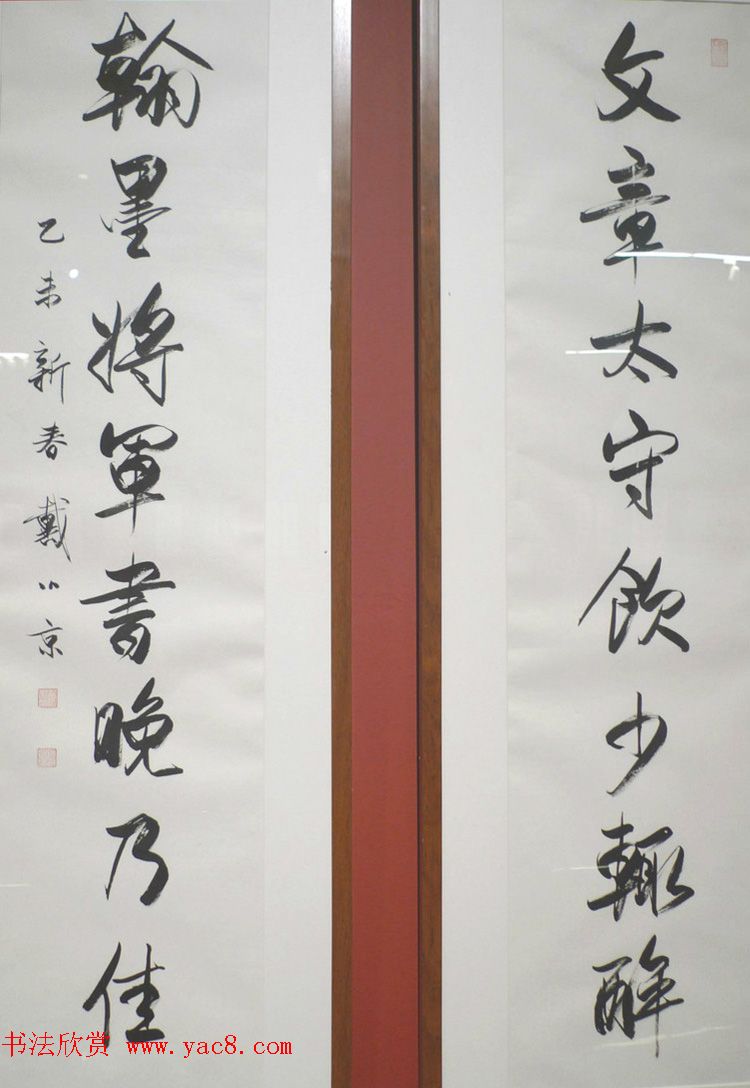 文章太守飲少輒醉
翰墨將軍書晚乃佳
乙未新春戴小京
书法欣赏 www.yac8.com